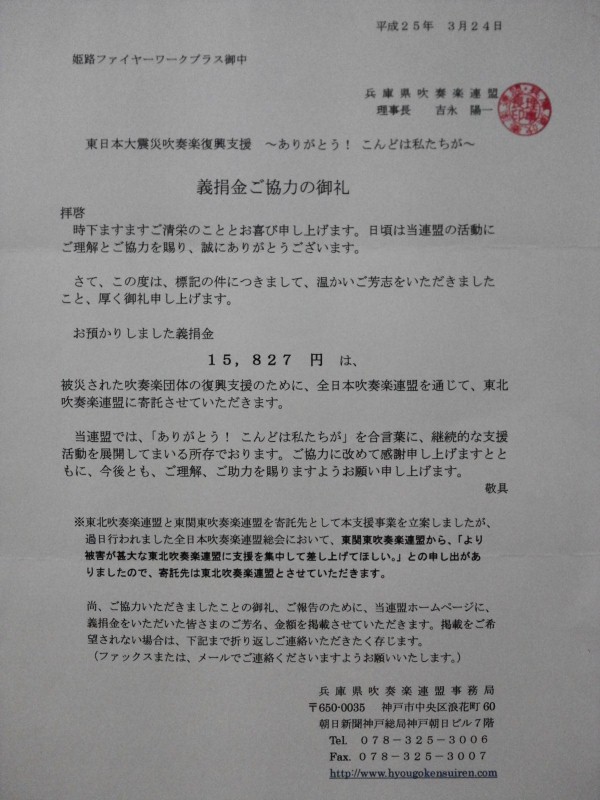 平成２５年　３月２４日
姫路ファイヤーワークブラス御中
兵庫県吹奏楽連盟
理事長　吉永　陽一
東日本大震災吹奏楽復興支援　～ありがとう！ こんどは私たちが～
義捐金ご協力の御礼
拝啓
時下ますますご清栄のこととお喜び申し上げます。日頃は当連盟の活動に
ご理解とご協力を賜り、誠にありがとうございます。
さて、この度は、標記の件につきまして、温かいご芳志をいただきました
こと、厚く御礼申し上げます。
お預かりしました義捐金
１５，８２７　円　は、
被災された吹奏楽団体の復興支援のために、全日本吹奏楽連盟を通じて、東北
吹奏楽連盟に寄託させていただきます。
当連盟では、「ありがとう！ こんどは私たちが」を合言葉に、継続的な支援
活動を展開してまいる所存でおります。ご協力に改めて感謝申し上げますとと
もに、今後とも、ご理解、ご助力を賜りますようお願い申し上げます。
敬具
※東北吹奏楽連盟と東関東吹奏楽連盟を寄託先として本支援事業を立案しましたが、
過日行われました全日本吹奏楽連盟総会において、東関東吹奏楽連盟から、「より
被害が甚大な東北吹奏楽連盟に支援を集中して差し上げてほしい。」との申し出があ
りましたので、寄託先は東北吹奏楽連盟とさせていただきます。
尚、ご協力いただきましたことの御礼、ご報告のために、当連盟ホームページに、
義捐金をいただいた皆さまのご芳名、金額を掲載させていただきます。掲載をご希
望されない場合は、下記まで折り返しご連絡いただきたく存じます。
（ファックスまたは、メールでご連絡くださいますようお願いいたします。）
兵庫県吹奏楽連盟事務局
〒650-0035　神戸市中央区浪花町 60
朝日新聞神戸総局神戸朝日ビル７階
Tel.　０７８－３２５－３００６
Fax.　０７８－３２５－３００７
http://www.hyougokensuiren.com